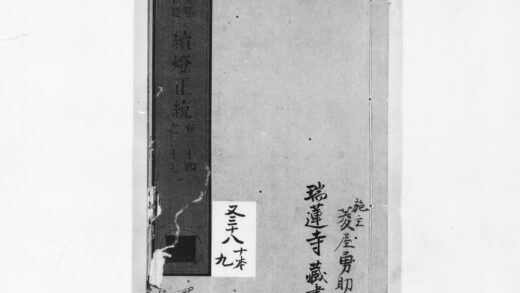 續燈正統
卷十四
之十七
又三十八
十本
九
施主
菱屋勇助
瑞蓮寺藏書